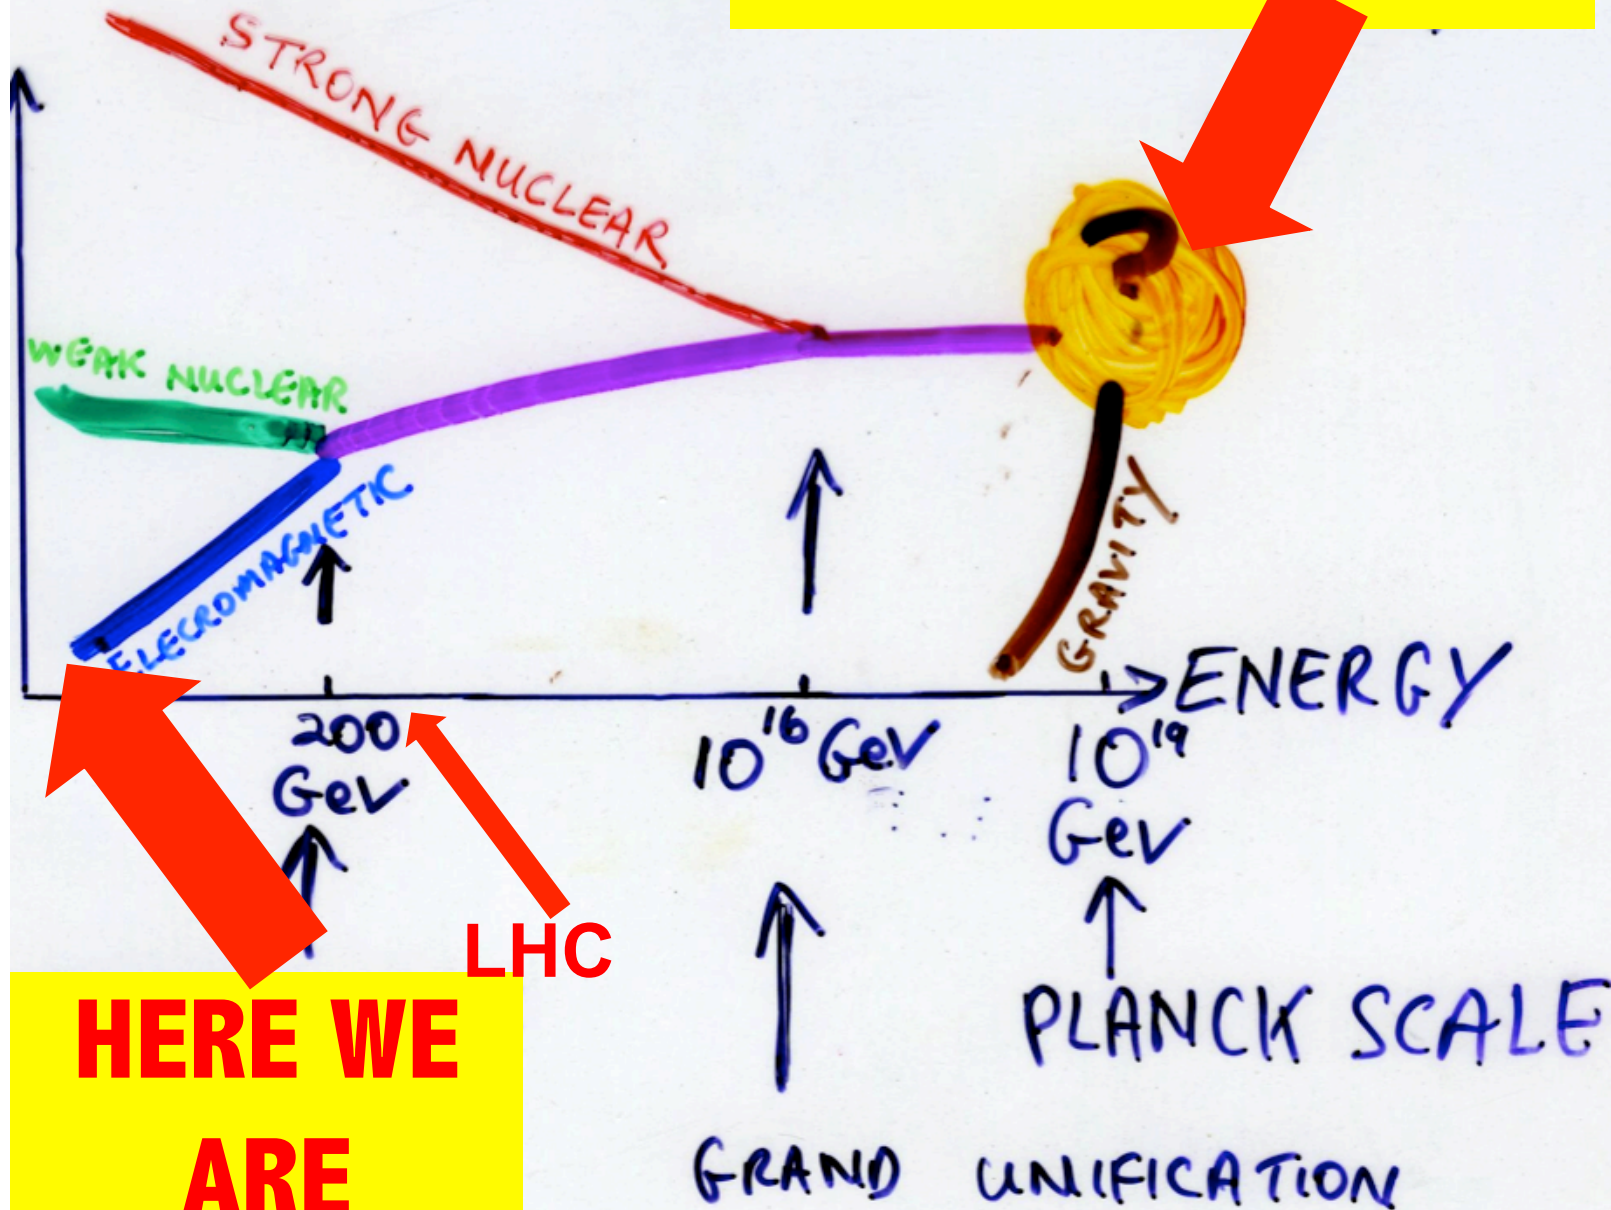 STRONG NUCLEAR
?
WEAK NUCLEAR
ELECROMAGNETIC
GRAVITY
ENERGY
200
GeV
10¹⁶ GeV
10¹⁹
GeV
LHC
HERE WE
ARE
PLANCK SCALE
GRAND UNIFICATION